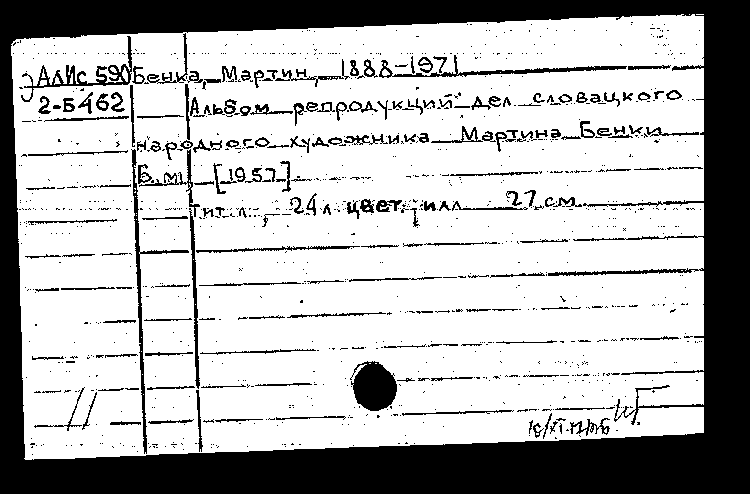 АлИс 590 Бенка, Мартин, 1888-1971
2-5462 Альбом репродукций дел словацкого
народного художника Мартина Бенки
Б.м., [1957].
Тит. л., 24 л. цвет. илл. 27 см.